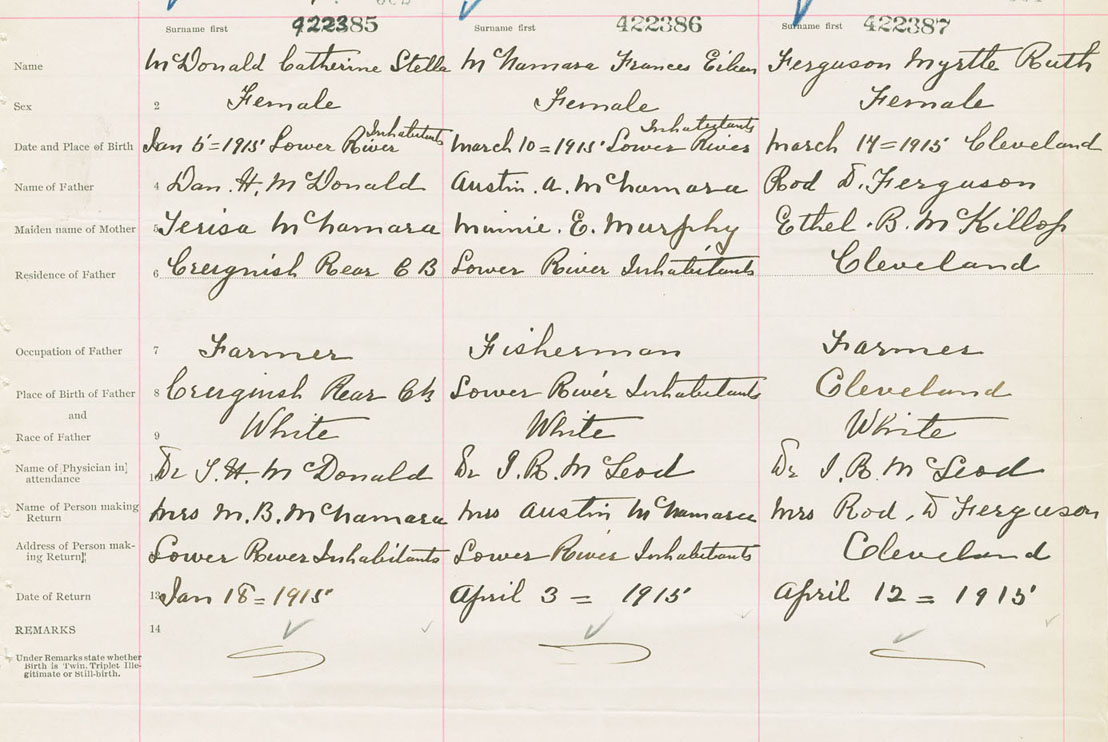 Surname first 422385 Surname first 422386 Surname first 422387
Name McDonald Catherine Stella McNamara Frances Eileen Ferguson Myrtle Ruth
Sex 2 Female Female Female
Inhabitants Inhabitants
Date and Place of Birth Jan 5=1915 Lower River March 10=1915 Lower River March 14=1915 Cleveland
Name of Father 4 Dan. H. McDonald Austin. A. McNamara Rod D. Ferguson
Maiden name of Mother 5 Terisa McNamara Minnie. E. Murphy Ethel. B. McKillop
Residence of Father 6 Creignish Rear C B Lower River Inhabitants Cleveland
Occupation of Father 7 Farmer Fisherman Farmer
Place of Birth of Father 8 Creignish Rear CB Lower River Inhabitants Cleveland
and
Race of Father 9 White White White
Name of Physician in attendance Dr McDonald Dr McLeod Dr McLeod
Name of Person making Return Mrs M. B. McNamara Mrs Austin McNamara Mrs Rod. D Ferguson
Address of Person making Return Lower River Inhabitants Lower River Inhabitants Cleveland
Date of Return 13 Jan 18=1915 April 3 = 1915 April 12 = 1915
REMARKS 14
Under Remarks state whether
Birth is Twin, Triplet Ille-
gitimate or Still-birth.